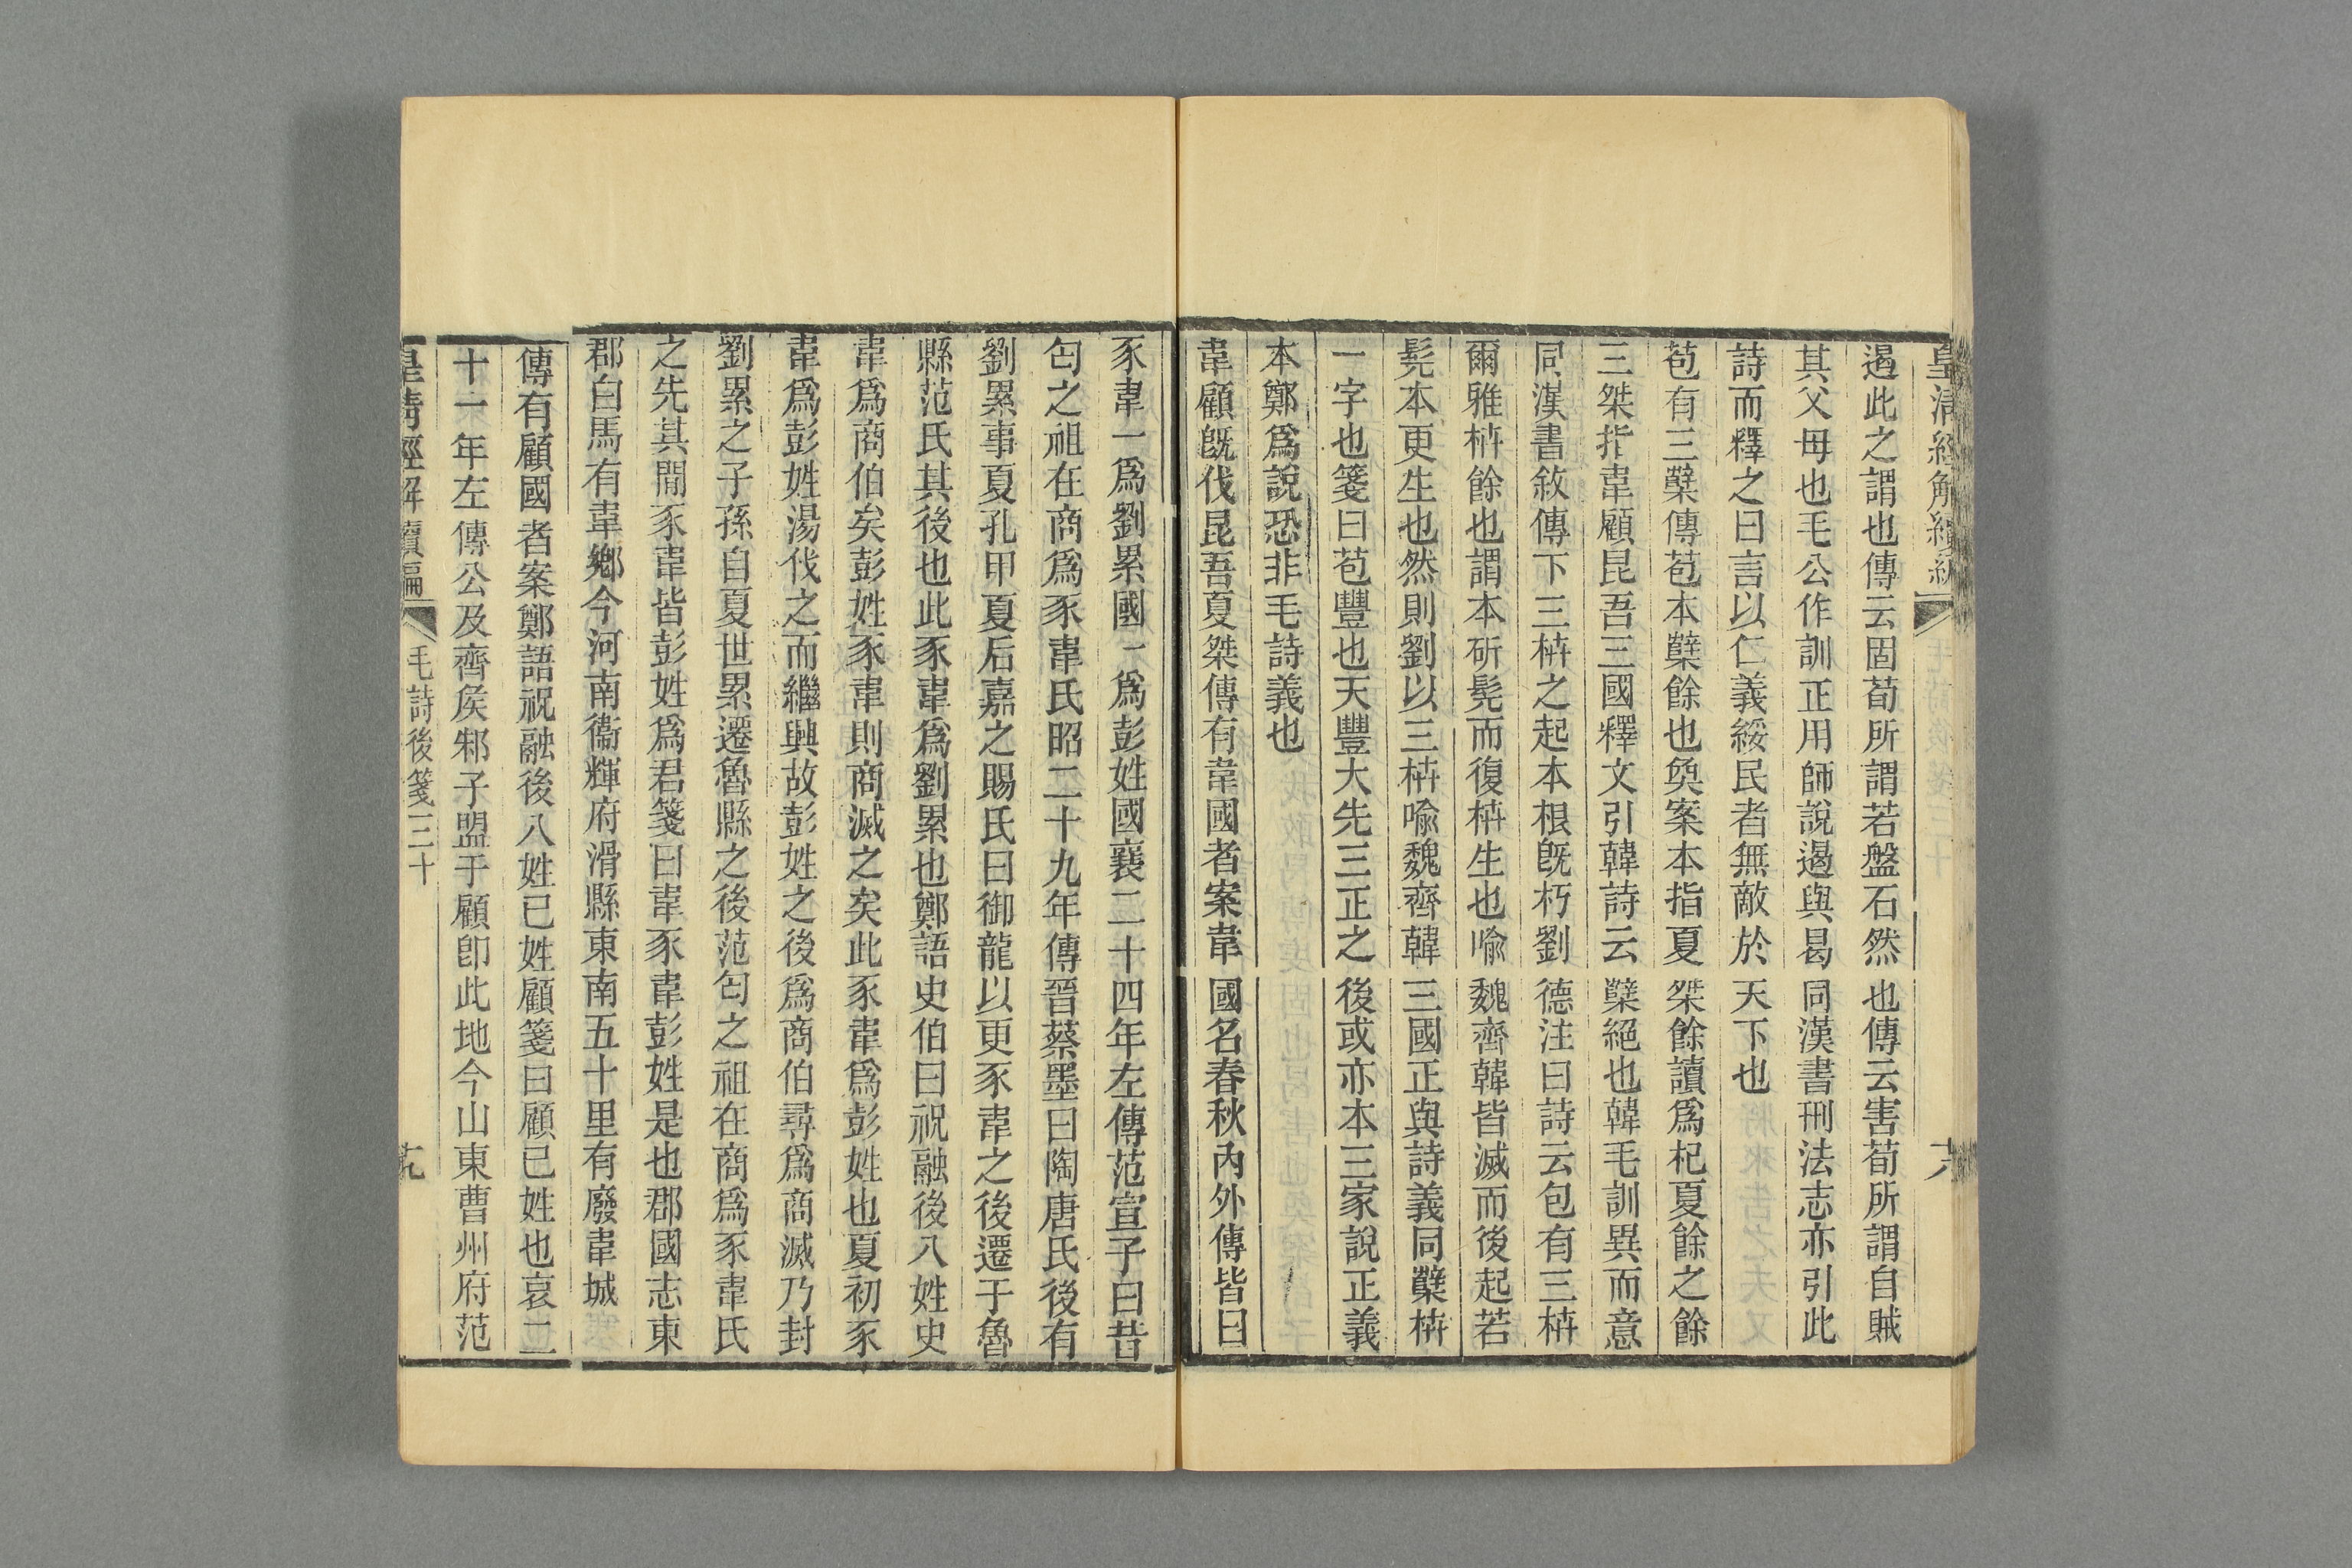 皇清經解續編
六
遏此之謂也傳云固荀所謂若盤石然也傳云害荀所謂自賊
其父母也毛公作訓正用師說遏與曷同漢書刑法志亦引此
詩而釋之曰言以仁義綏民者無敵於天下也
苞有三櫱傳苞本櫱餘也奐案本指夏桀餘讀爲杞夏餘之餘
三桀指韋顧昆吾三國釋文引韓詩云櫱絕也韓毛訓異而意
同漢書敘傳下三枿之起本根旣朽劉德注曰詩云包有三枿
爾雅枿餘也謂本斫髡而復枿生也喻魏齊韓皆滅而後起若
髡本更生也然則劉以三枿喻魏齊韓三國正與詩義同櫱枿
一字也箋曰苞豐也天豐大先三正之後或亦本三家說正義
本鄭爲說恐非毛詩義也
韋顧旣伐昆吾夏桀傳有韋國者案韋國名春秋內外傳皆曰
豕韋一爲劉累國一爲彭姓國襄二十四年左傳范宣子曰昔
匄之祖在商爲豕韋氏昭二十九年傳晉蔡墨曰陶唐氏後有
劉累事夏孔甲夏后嘉之賜氏曰御龍以更豕韋之後遷于魯
縣范氏其後也此豕韋爲劉累也鄭語史伯曰祝融後八姓史
韋爲商伯矣彭姓豕韋則商滅之矣此豕韋爲彭姓也夏初豕
韋爲彭姓湯伐之而繼興故彭姓之後爲商伯尋爲商滅乃封
劉累之子孫自夏世累遷魯縣之後范匄之祖在商爲豕韋氏
之先其閒豕韋皆彭姓爲君箋曰韋豕韋彭姓是也郡國志東
郡白馬有韋鄉今河南衞輝府滑縣東南五十里有廢韋城
傳有顧國者案鄭語祝融後八姓已姓顧箋曰顧已姓也哀二
十一年左傳公及齊侯邾子盟于顧卽此地今山東曹州府范
皇淸經解續編
毛詩後箋三十